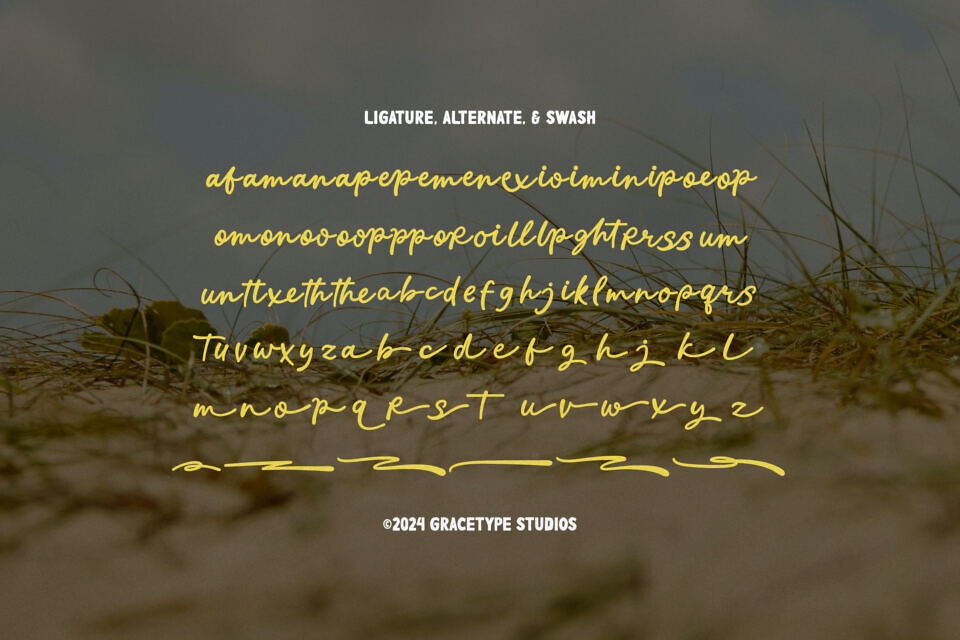 LIGATURE, ALTERNATE, & SWASH
afamanapepemenexioiminipoeop
omonooooppppoRoillllpghtRrss um
unttxeththeabcdefghjiklmnopqrs
Tuvwxyzabcdefghjkl
mnopqRsT uvwxyz
©2024 GRACETYPE STUDIOS